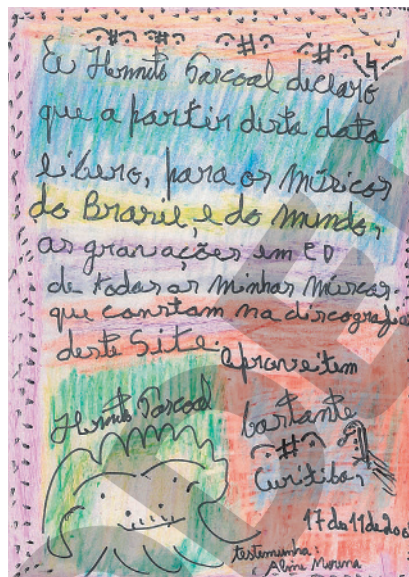 Eu Hermeto Pascoal declaro
que a partir desta data
libero, para os músicos
do Brasil, e do mundo,
as gravações em CD
de todas as minhas músicas
que constam na discografia
deste Site. Aproveitem
bastante
Hermeto Pascoal
Curitiba,
17 de 11 de 200
testemunha:
Aline Morena